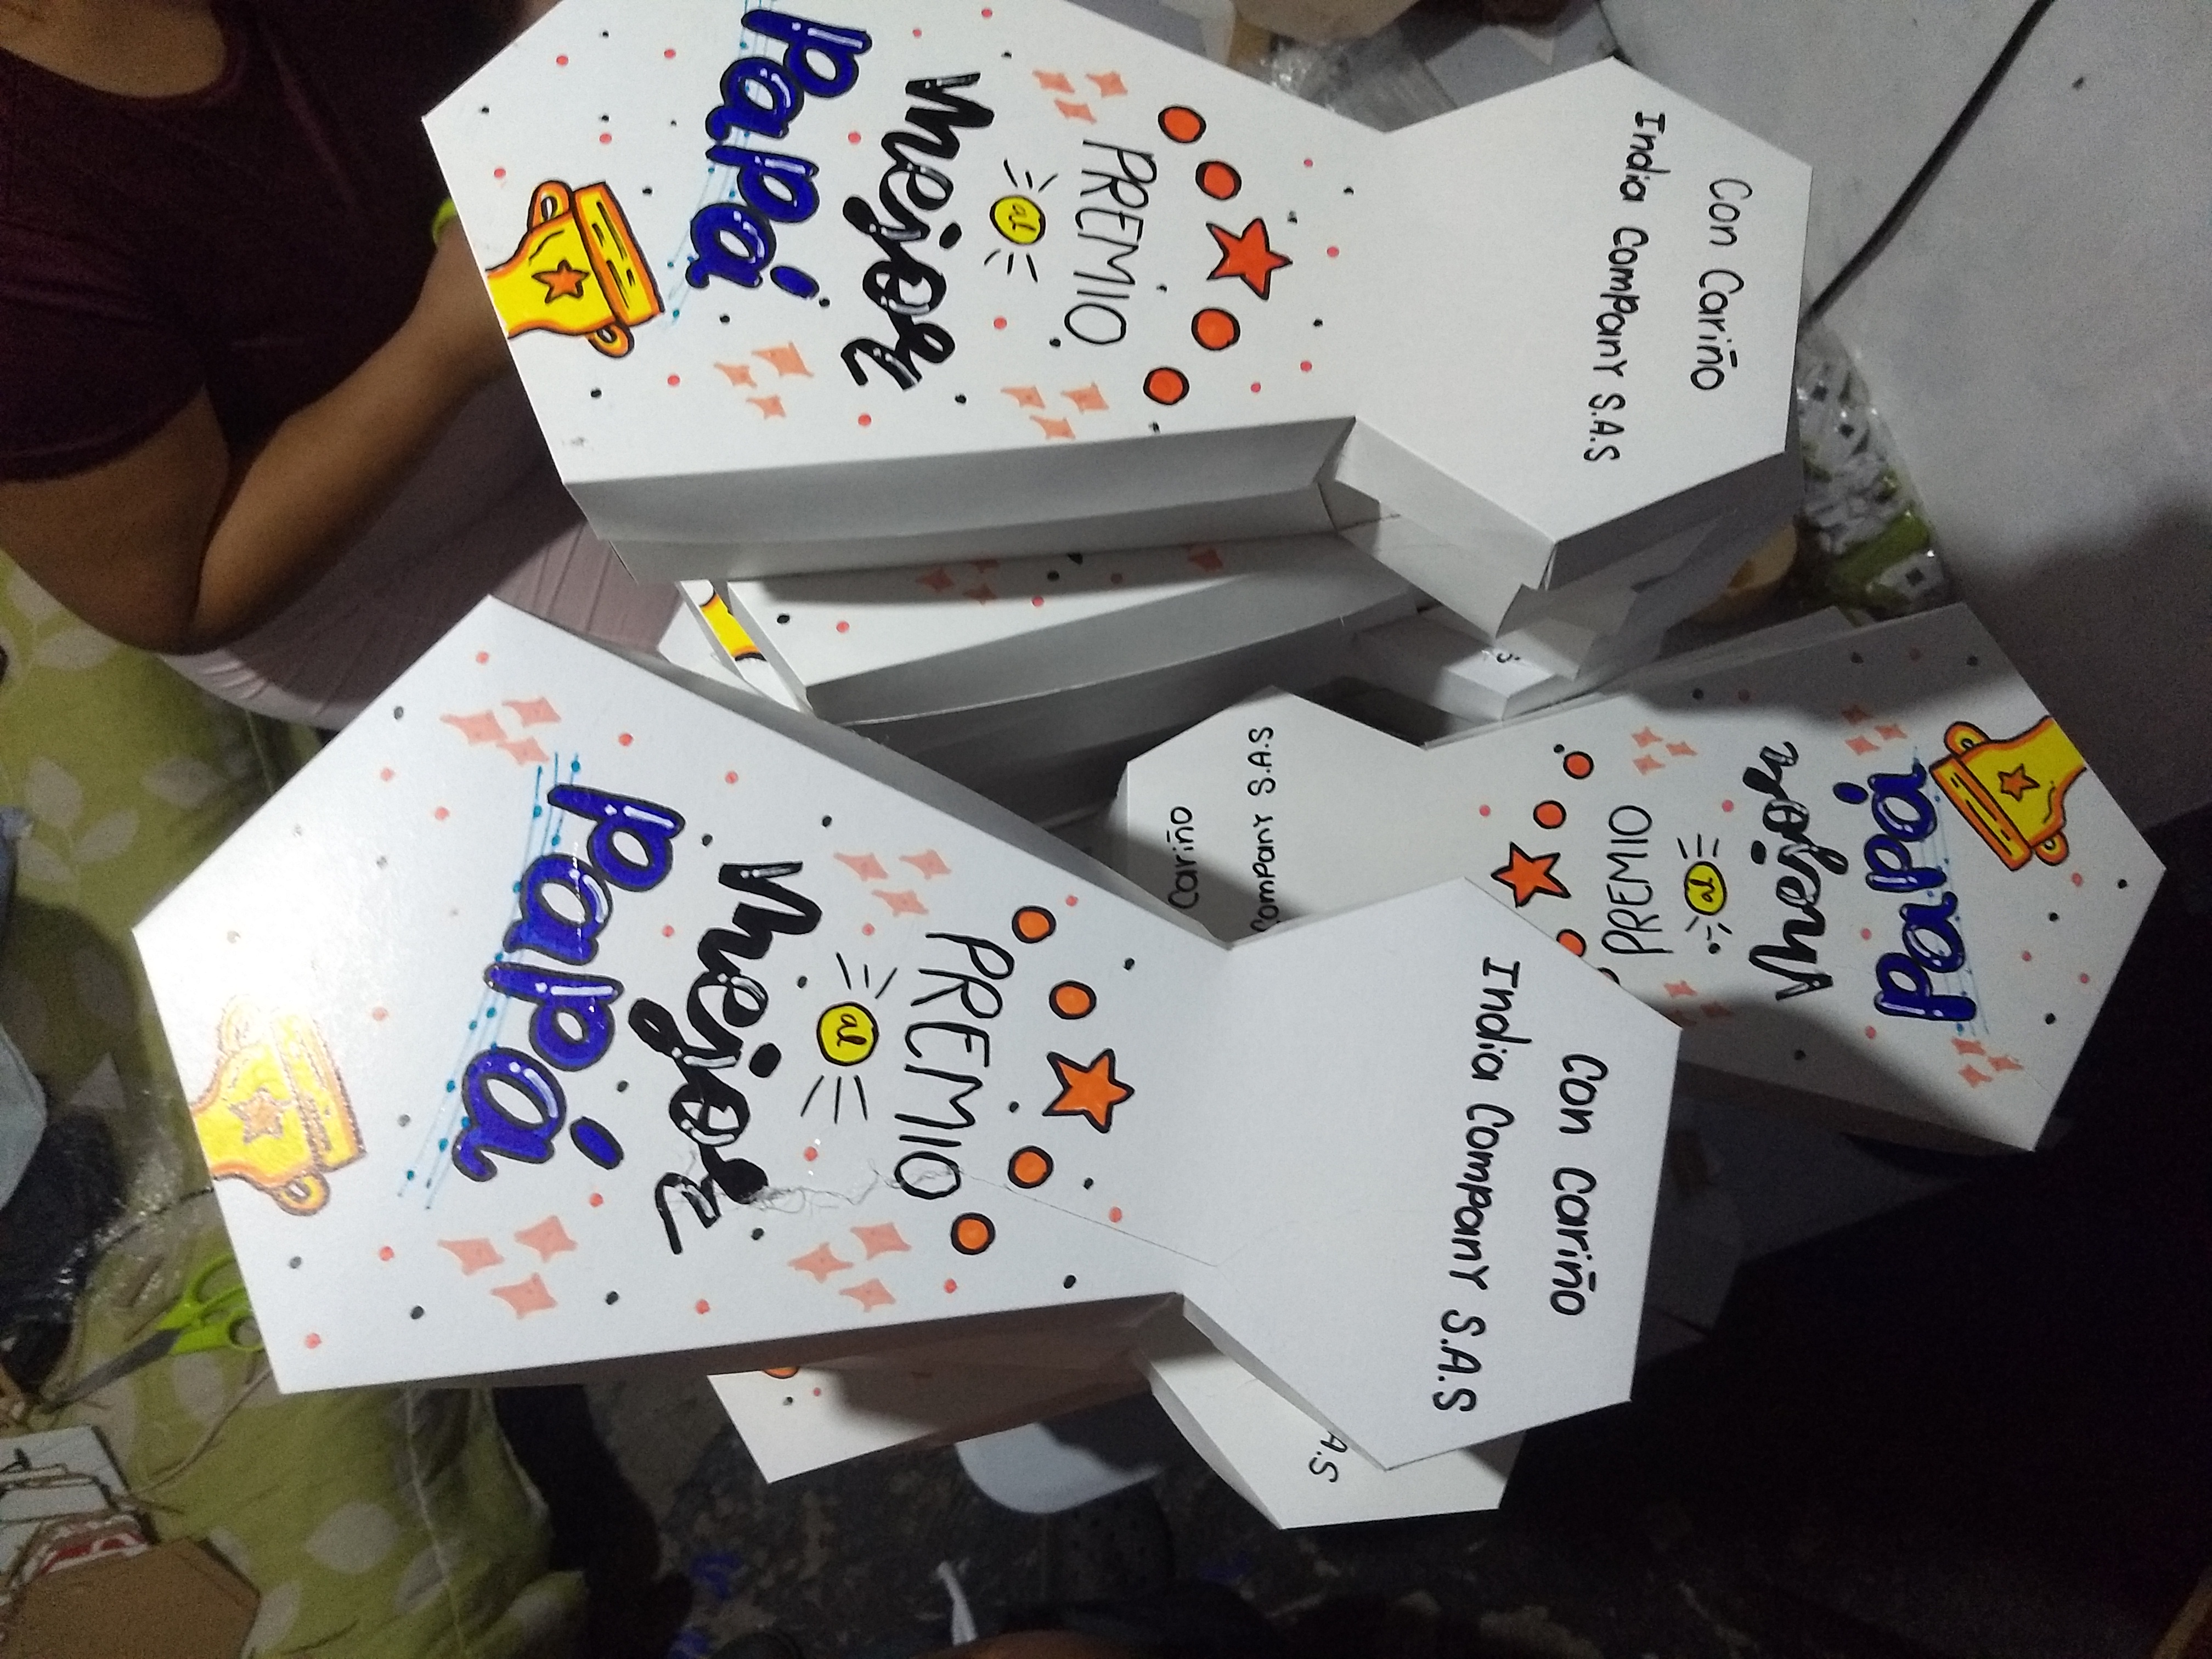 Con Cariño
India Company S.A.S
PREMIO
al
Mejor
Papá
Con Cariño
India Company S.A.S
PREMIO
al
Mejor
Papá
Cariño
Company S.A.S
PREMIO
al
Mejor
Papá
A.S